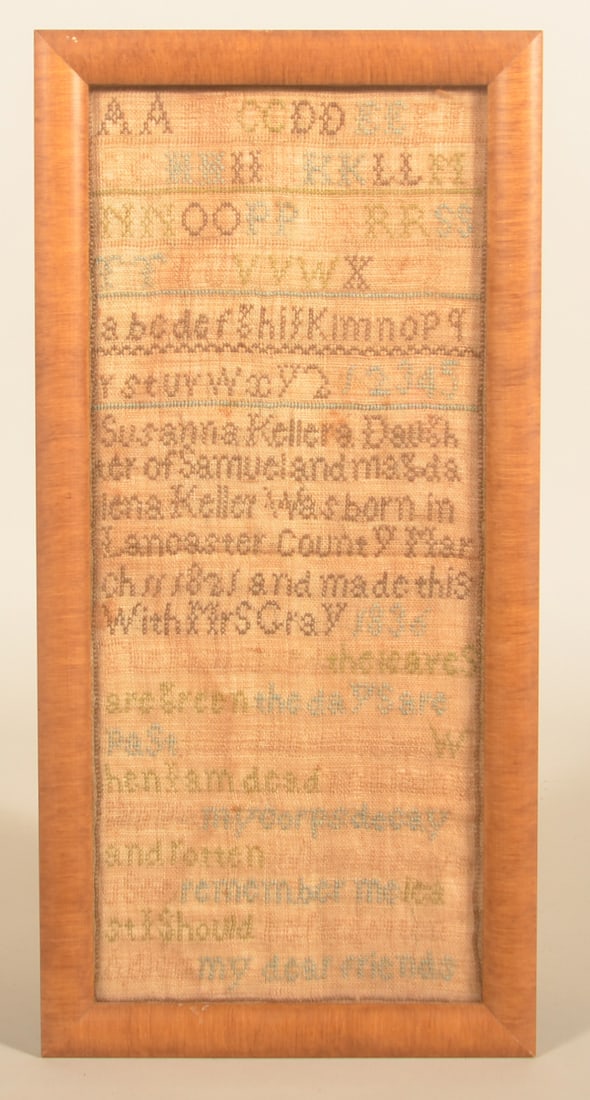 A A C C D D E E
H H I I K K L L M
N N O O P P R R S S
T T V V W X
a b c d e f g h i k l m n o p q
r s t u v w x y z 1 2 3 4 5
Susanna Keller a Daugh
ter of Samuel and magda
lena Keller Was born in
Lancaster County Mar
ch 11 1821 and made this
With Mrs Gray
are green the days are
Past W
hen I am dead
my corps decay
and rotten
remember me lea
st I Should
my dear friends